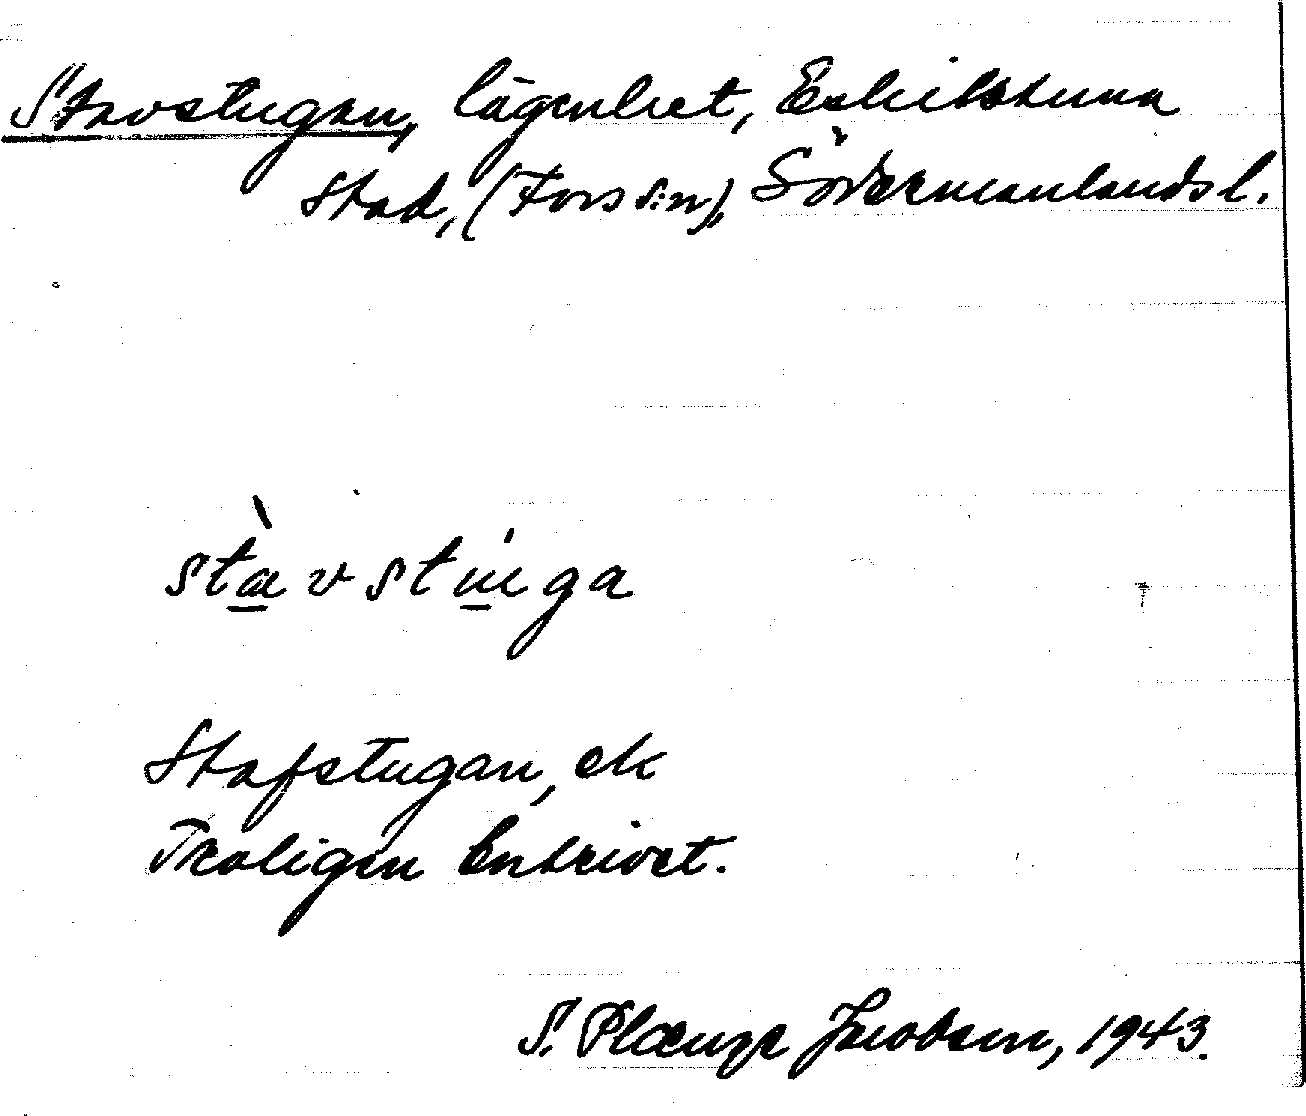 Stavstugan, lägenhet, Eskilstuna
stad, (Fors s:n), Södermanlands l.
stàvstúga
Stafstugan, ek
Troligen
S. Plænge Jacobsen, 1943.